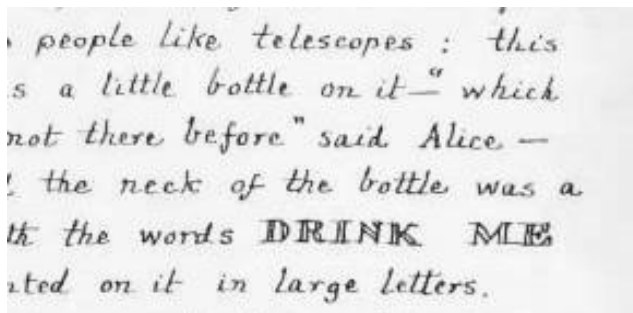 people like telescopes : this
s a little bottle on it—“ which
not there before" said Alice —
the neck of the bottle was a
th the words DRINK ME
nted on it in large letters.